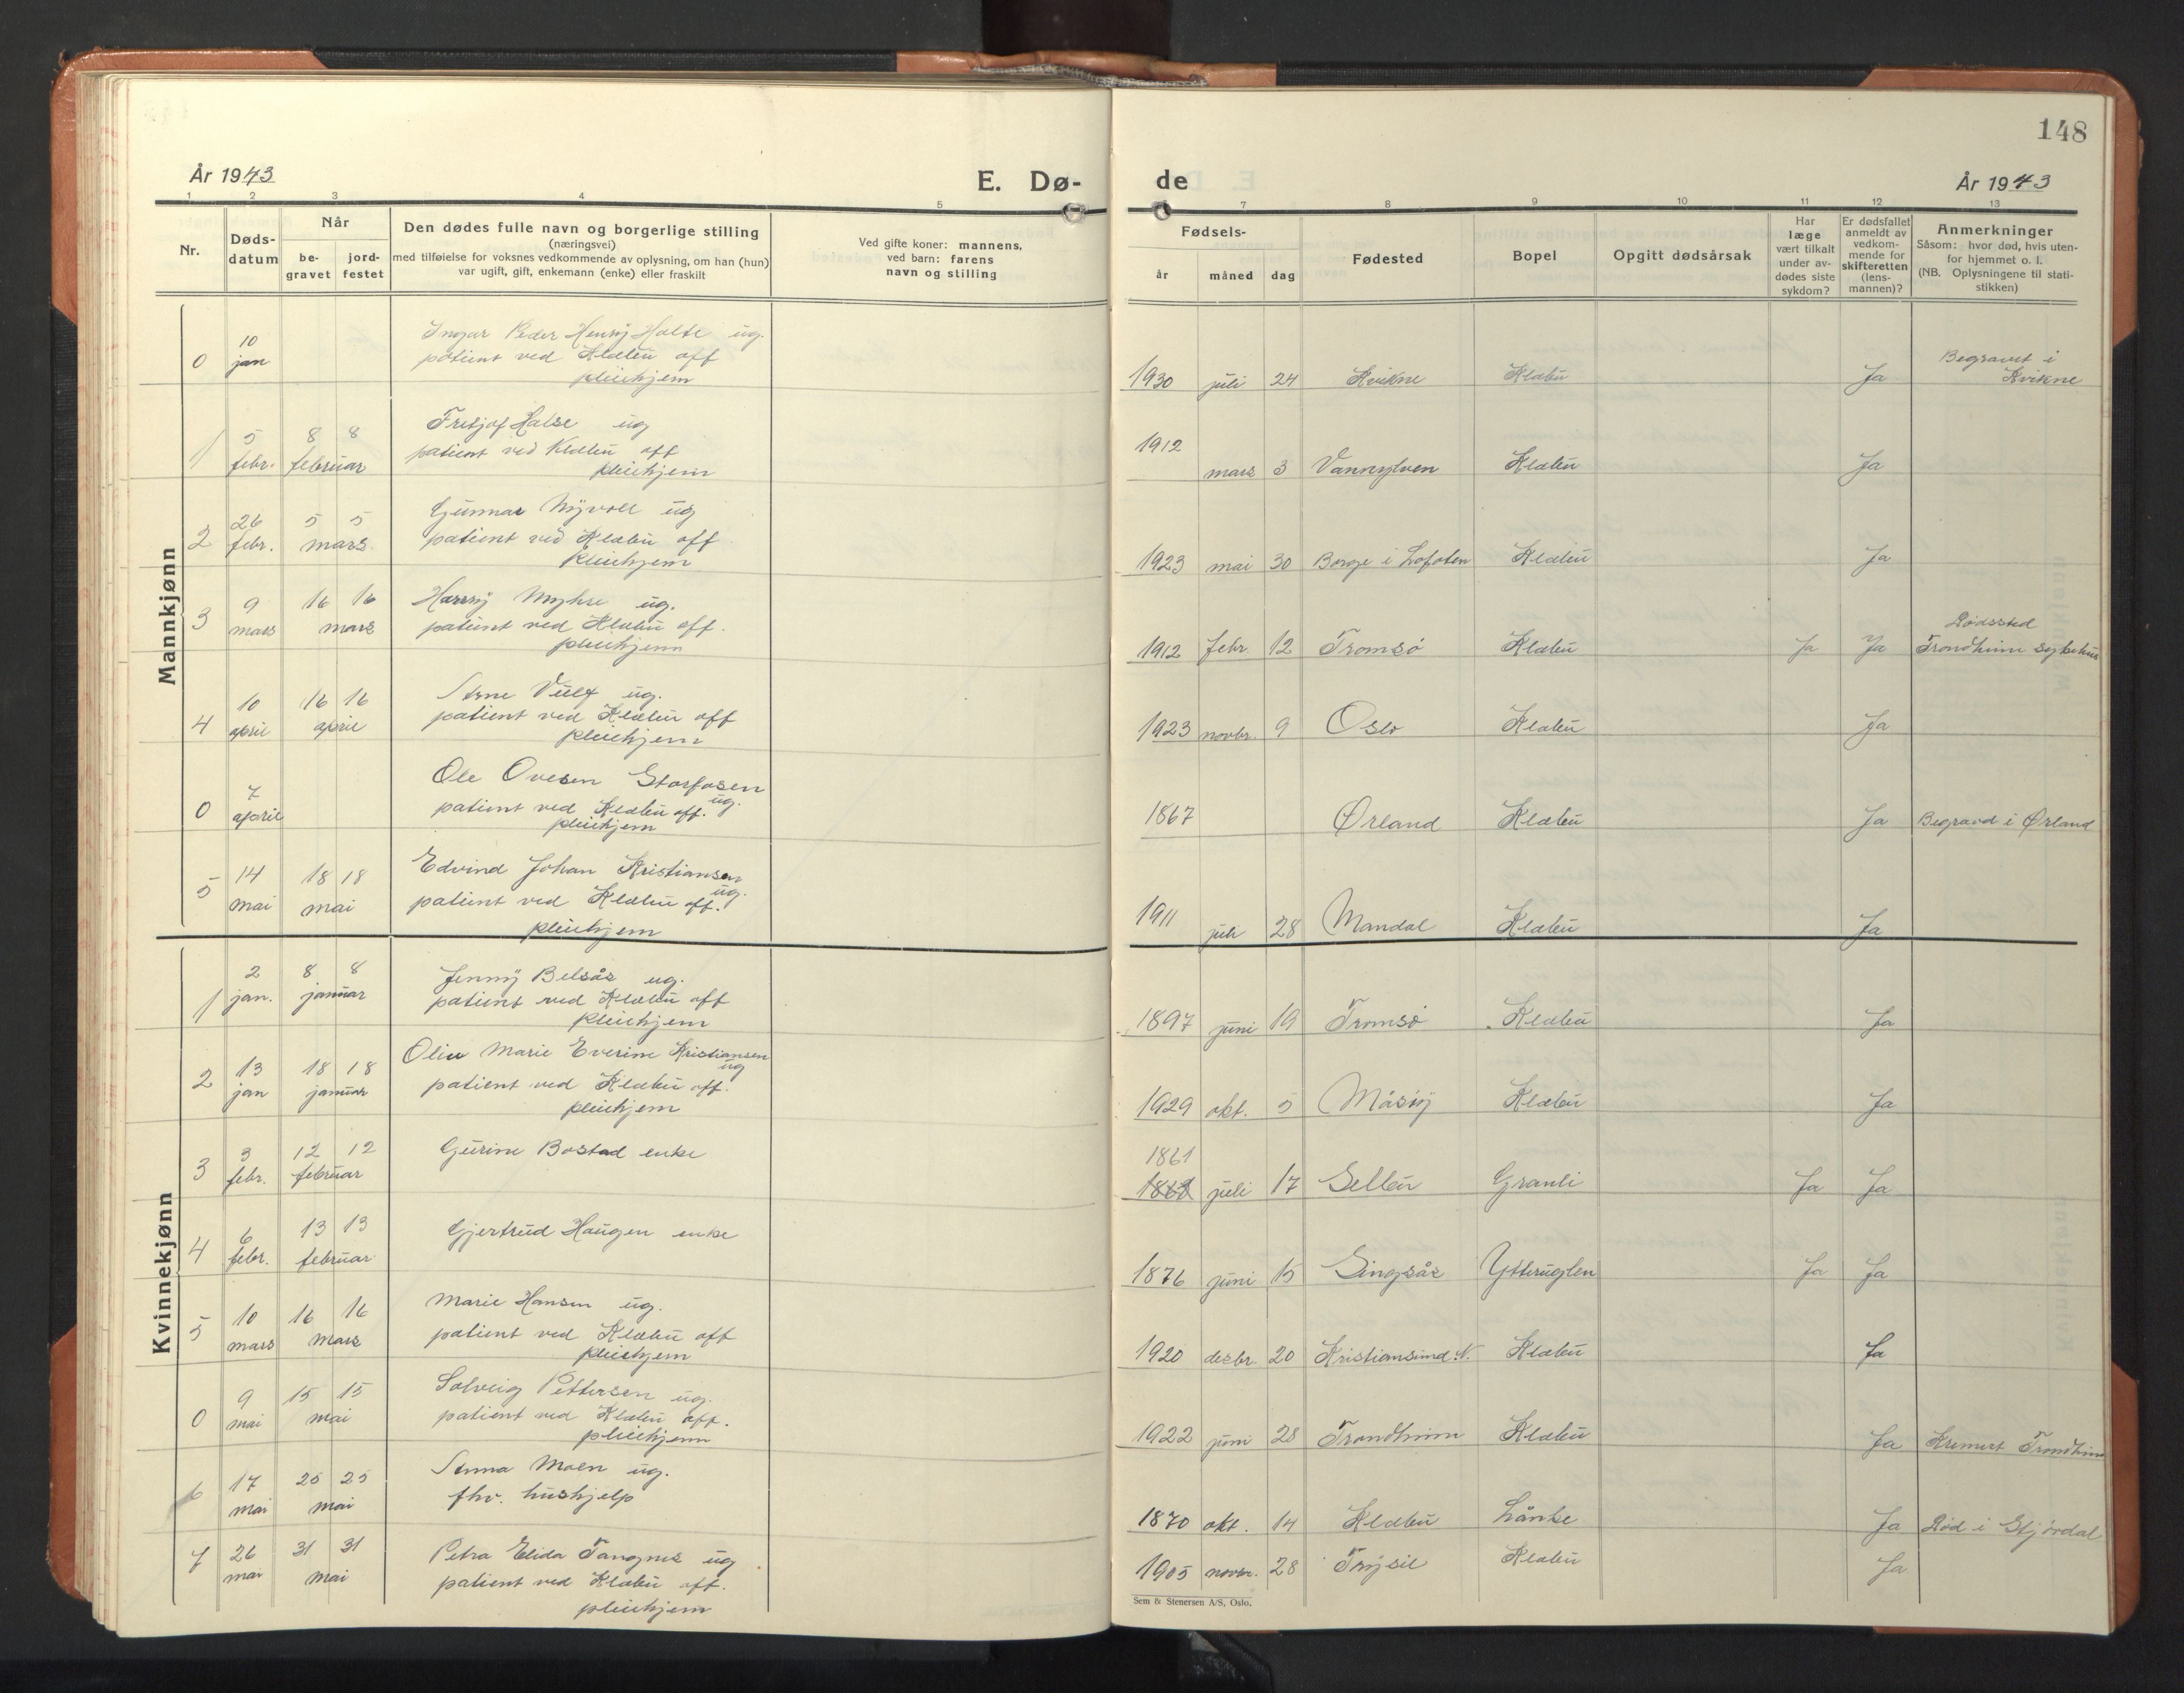 148
År 1943
E. Dø-
de
År 1943
1 2 3 4 5
7 8 9 10 11 12 13
Nr.
Døds-
datum
Når
be-
gravet
jord-
festet
Den dødes fulle navn og borgerlige stilling
(næringsvei)
med tilføielse for voksnes vedkommende av oplysning, om han (hun)
var ugift, gift, enkemann (enke) eller fraskilt
Ved gifte koner: mannens,
ved barn: farens
navn og stilling
Fødsels-
år måned dag
Fødested
Bopel
Opgitt dødsårsak
Har
læge
vært tilkalt
under av-
dødes siste
sykdom?
Er dødsfallet
anmeldt av
vedkom-
mende for
skifteretten
(lens-
mannen)?
Anmerkninger
Såsom: hvor død, hvis uten-
for hjemmet o. l.
(NB. Oplysningene til stati-
stikken)
Mannkjønn
0 10 jan
Ingar Peder Henry Holte ug.
patient ved Klæbu off
pleiehjem
1930 juli 24 Kvikne Klæbu Ja
Begravet i
Kvikne
1 5 febr. 8 8 februar
Fretjof Halse ug
patient ved Klæbu off
pleiehjem
1912 mars 3 Vannylven Klæbu Ja
2 26 febr. 5 5 mars
Gunnar Nyvoll ug
patient ved Klæbu off
pleiehjem
1923 mai 30 Borge i Lofoten Klæbu Ja
3 9 mars 16 16 mars
Harry Myhre ug.
patient ved Klæbu off.
pleiehjem
1912 febr. 12 Tromsø Klæbu Ja Ja
Dødssted
Trondheim sykehus
4 10 april 16 16 april
Arne Vulf ug.
patient ved Klæbu off
pleiehjem
1923 novbr. 9 Oslo Klæbu Ja
0 7 april
Ole Ovesen Storfosen
ug.
patient ved Klæbu off.
pleiehjem
1867 Ørland Klæbu Ja Begravd i Ørland
5 14 mai 18 18 mai
Edvind Johan Kristiansen
ug.
patient ved Klæbu off.
pleiehjem
1911 juli 28 Mandal Klæbu Ja
Kvinnekjønn
1 2 jan. 8 8 januar
Jenny Belsås ug.
patient ved Klæbu off
pleiehjem
1897 juni 19 Tromsø Klæbu Ja
2 13 jan 18 18 januar
Oliu Marie Everine Kristiansen
ug
patient ved Klæbu off.
pleiehjem
1929 okt. 5 Måsøy Klæbu Ja
3 3 febr. 12 12 februar
Gurine Bostad enke
1861
juli 17 Selbu Granli Ja Ja
4 6 febr. 13 13 februar
Gjertrud Haugen enke
1876 juni 15 Singsås Ytteruglen Ja Ja
5 10 mars 16 16 mars
Marie Hansen ug.
patient ved Klæbu off
pleiehjem
1920 desbr. 20 Kristiansund N. Klæbu Ja
0 9 mai 15 15 mai
Solveig Pettersen ug.
patient ved Klæbu off.
pleiehjem
1922 juni 28 Trondheim Klæbu Ja Kremert Trondheim
6 17 mai 25 25 mai
Anna Moen ug.
fhv. hushjelp
1870 okt. 14 Klæbu Lånke Ja Død i Stjørdal
7 26 mai 31 31 mai
Petra Elida Tangnes ug
patient ved Klæbu off.
pleiehjem
1905 novbr. 28 Trysil Klæbu Ja
Sem & Stenersen A/S, Oslo.